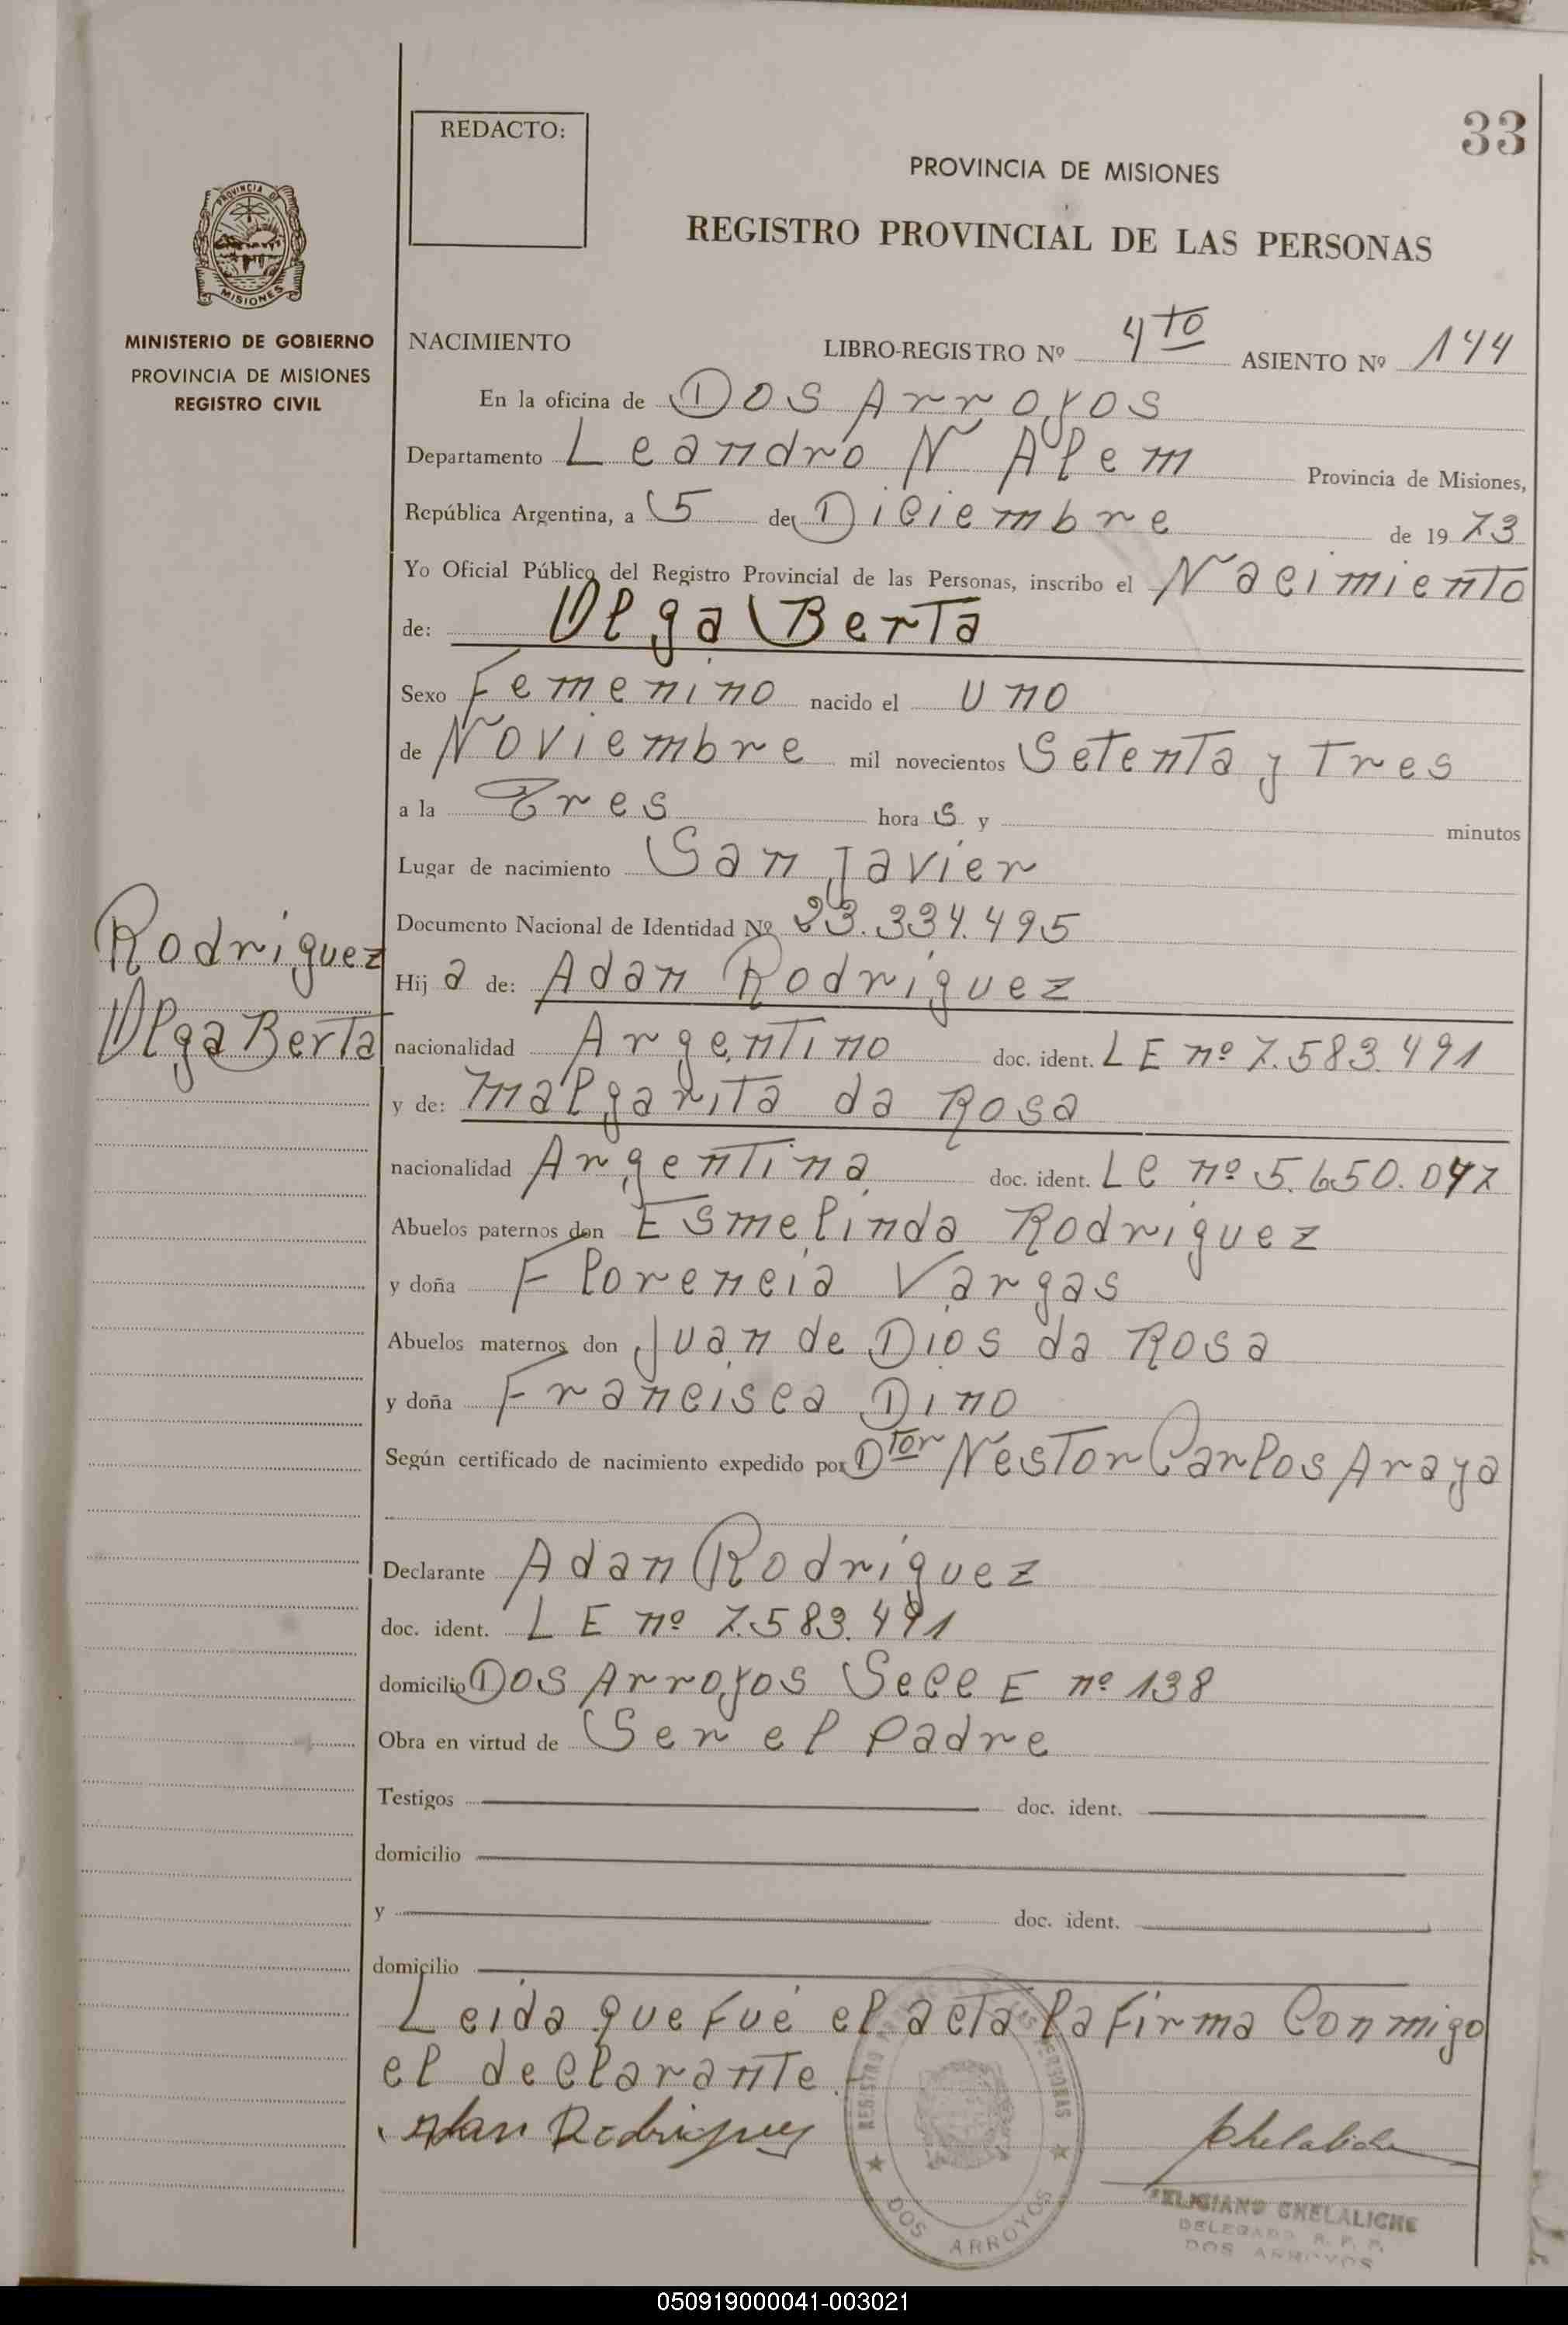 33
REDACTO:
PROVINCIA DE MISIONES
REGISTRO PROVINCIAL DE LAS PERSONAS
PROVINCIA DE
MISIONES
MINISTERIO DE GOBIERNO
PROVINCIA DE MISIONES
REGISTRO CIVIL
NACIMIENTO LIBRO-REGISTRO Nº 4to ASIENTO Nº 144
En la oficina de Dos Arroyos
Departamento Leandro N Alem Provincia de Misiones,
República Argentina, a 5 de Diciembre de 1973
Yo Oficial Público del Registro Provincial de las Personas, inscribo el Nacimiento
de: Olga Berta
Sexo Femenino nacido el uno
de Noviembre mil novecientos Setenta y Tres
a la Tres hora s y minutos
Lugar de nacimiento San Javier
Documento Nacional de Identidad Nº 23.334.495
Rodriguez
Olga Berta
Hij a de: Adan Rodriguez
nacionalidad Argentino doc. ident. LE nº 7.583.491
y de: Malgarita da Rosa
nacionalidad Argentina doc. ident. LC nº 5.650.047
Abuelos paternos don Esmelindo Rodriguez
y doña Florencia Vargas
Abuelos maternos don Juan de Dios da Rosa
y doña Francisca Dino
Según certificado de nacimiento expedido por Dtor Nestor Carlos Araya
Declarante Adan Rodriguez
doc. ident. LE nº 7.583.491
domicilio Dos Arroyos Secc E nº 138
Obra en virtud de Ser el Padre
Testigos doc. ident.
domicilio
y doc. ident.
domicilio
Leida que fué el acta la firma Conmigo
el declarante.-
Adan Rodriguez
DOS ARROYOS
FELICIANO CHELALICHE
DELEGADO R. P. P.
DOS ARROYOS
050919000041-003021